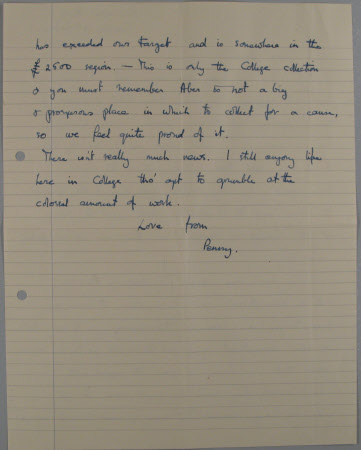 has exceeded our target and is somewhere in the
£2500 region. — This is only the College collection
& you must remember Aber is not a big
& prosperous place in which to collect for a cause,
so we feel quite proud of it.
There isn't really much news. I still enjoy life
here in College tho' apt to grumble at the
colossal amount of work.
Love from
Penny.